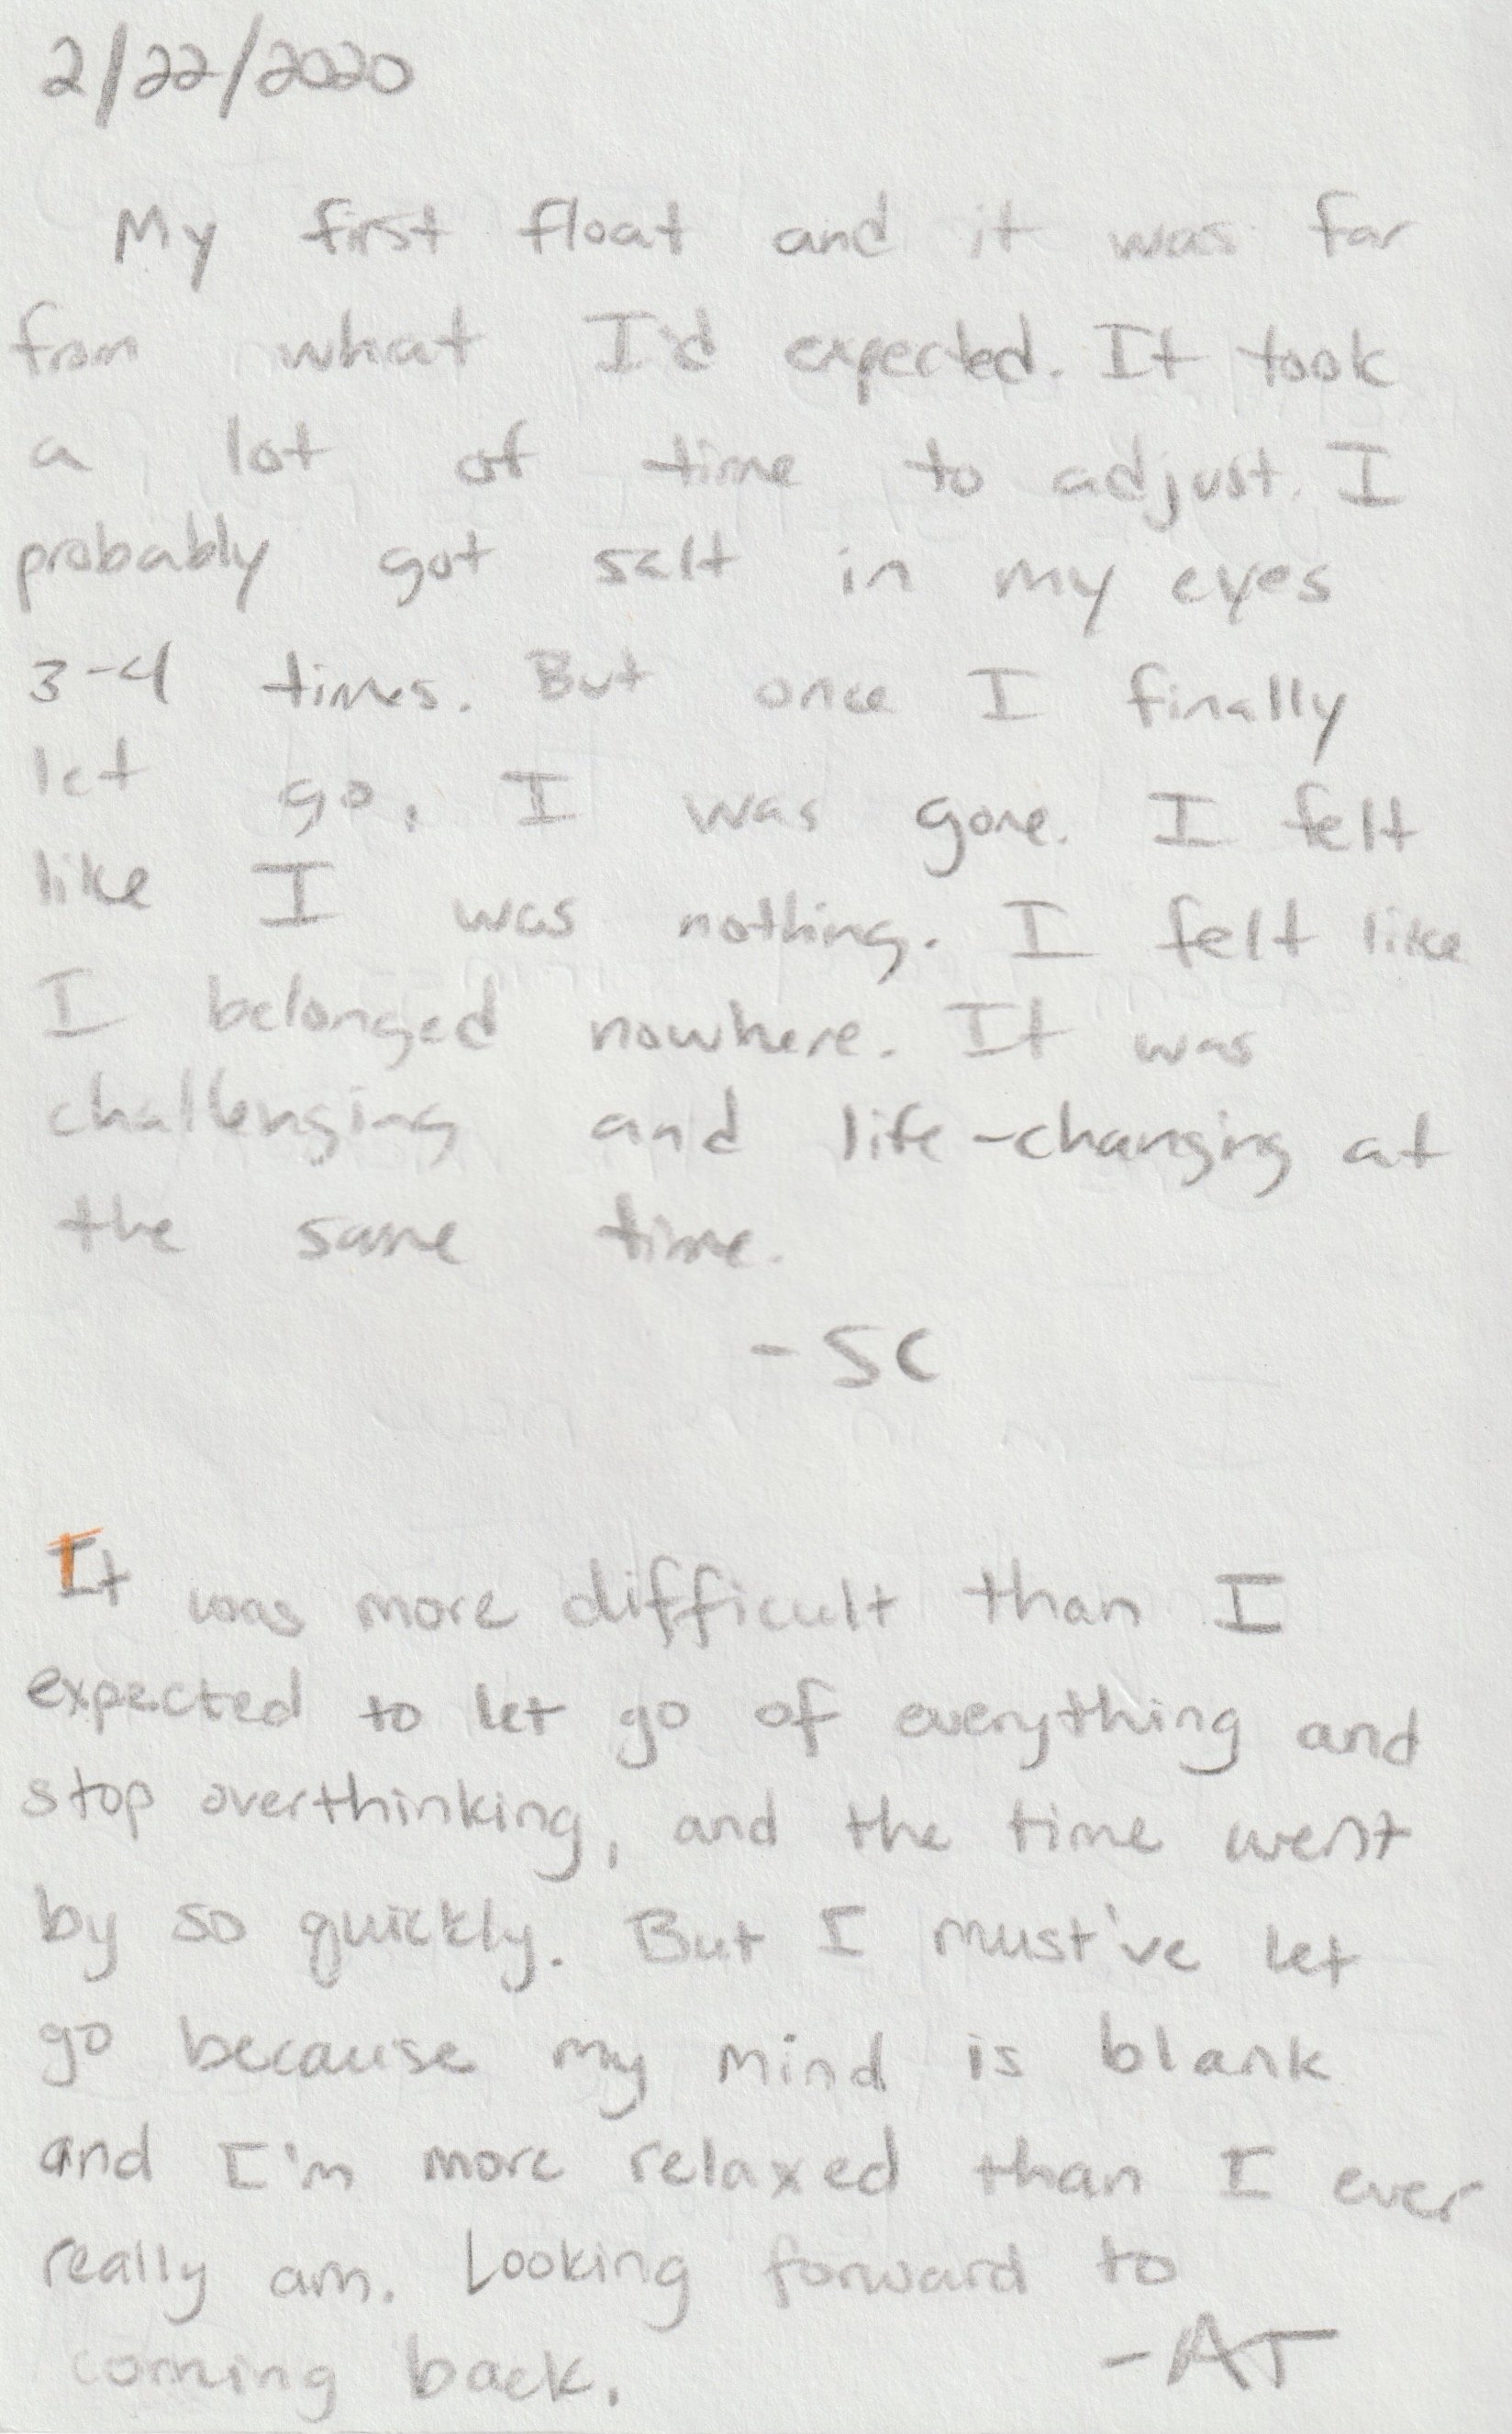 2/22/2020
My first float and it was far
from what I'd expected. It took
a lot of time to adjust. I
probably got salt in my eyes
3-4 times. But once I finally
let go, I was gone. I felt
like I was nothing. I felt like
I belonged nowhere. It was
challenging and life-changing at
the same time.
-SC
It was more difficult than I
expected to let go of everything and
stop overthinking, and the time went
by so quickly. But I must've let
go because my mind is blank
and I'm more relaxed than I ever
really am. Looking forward to
coming back. -AT